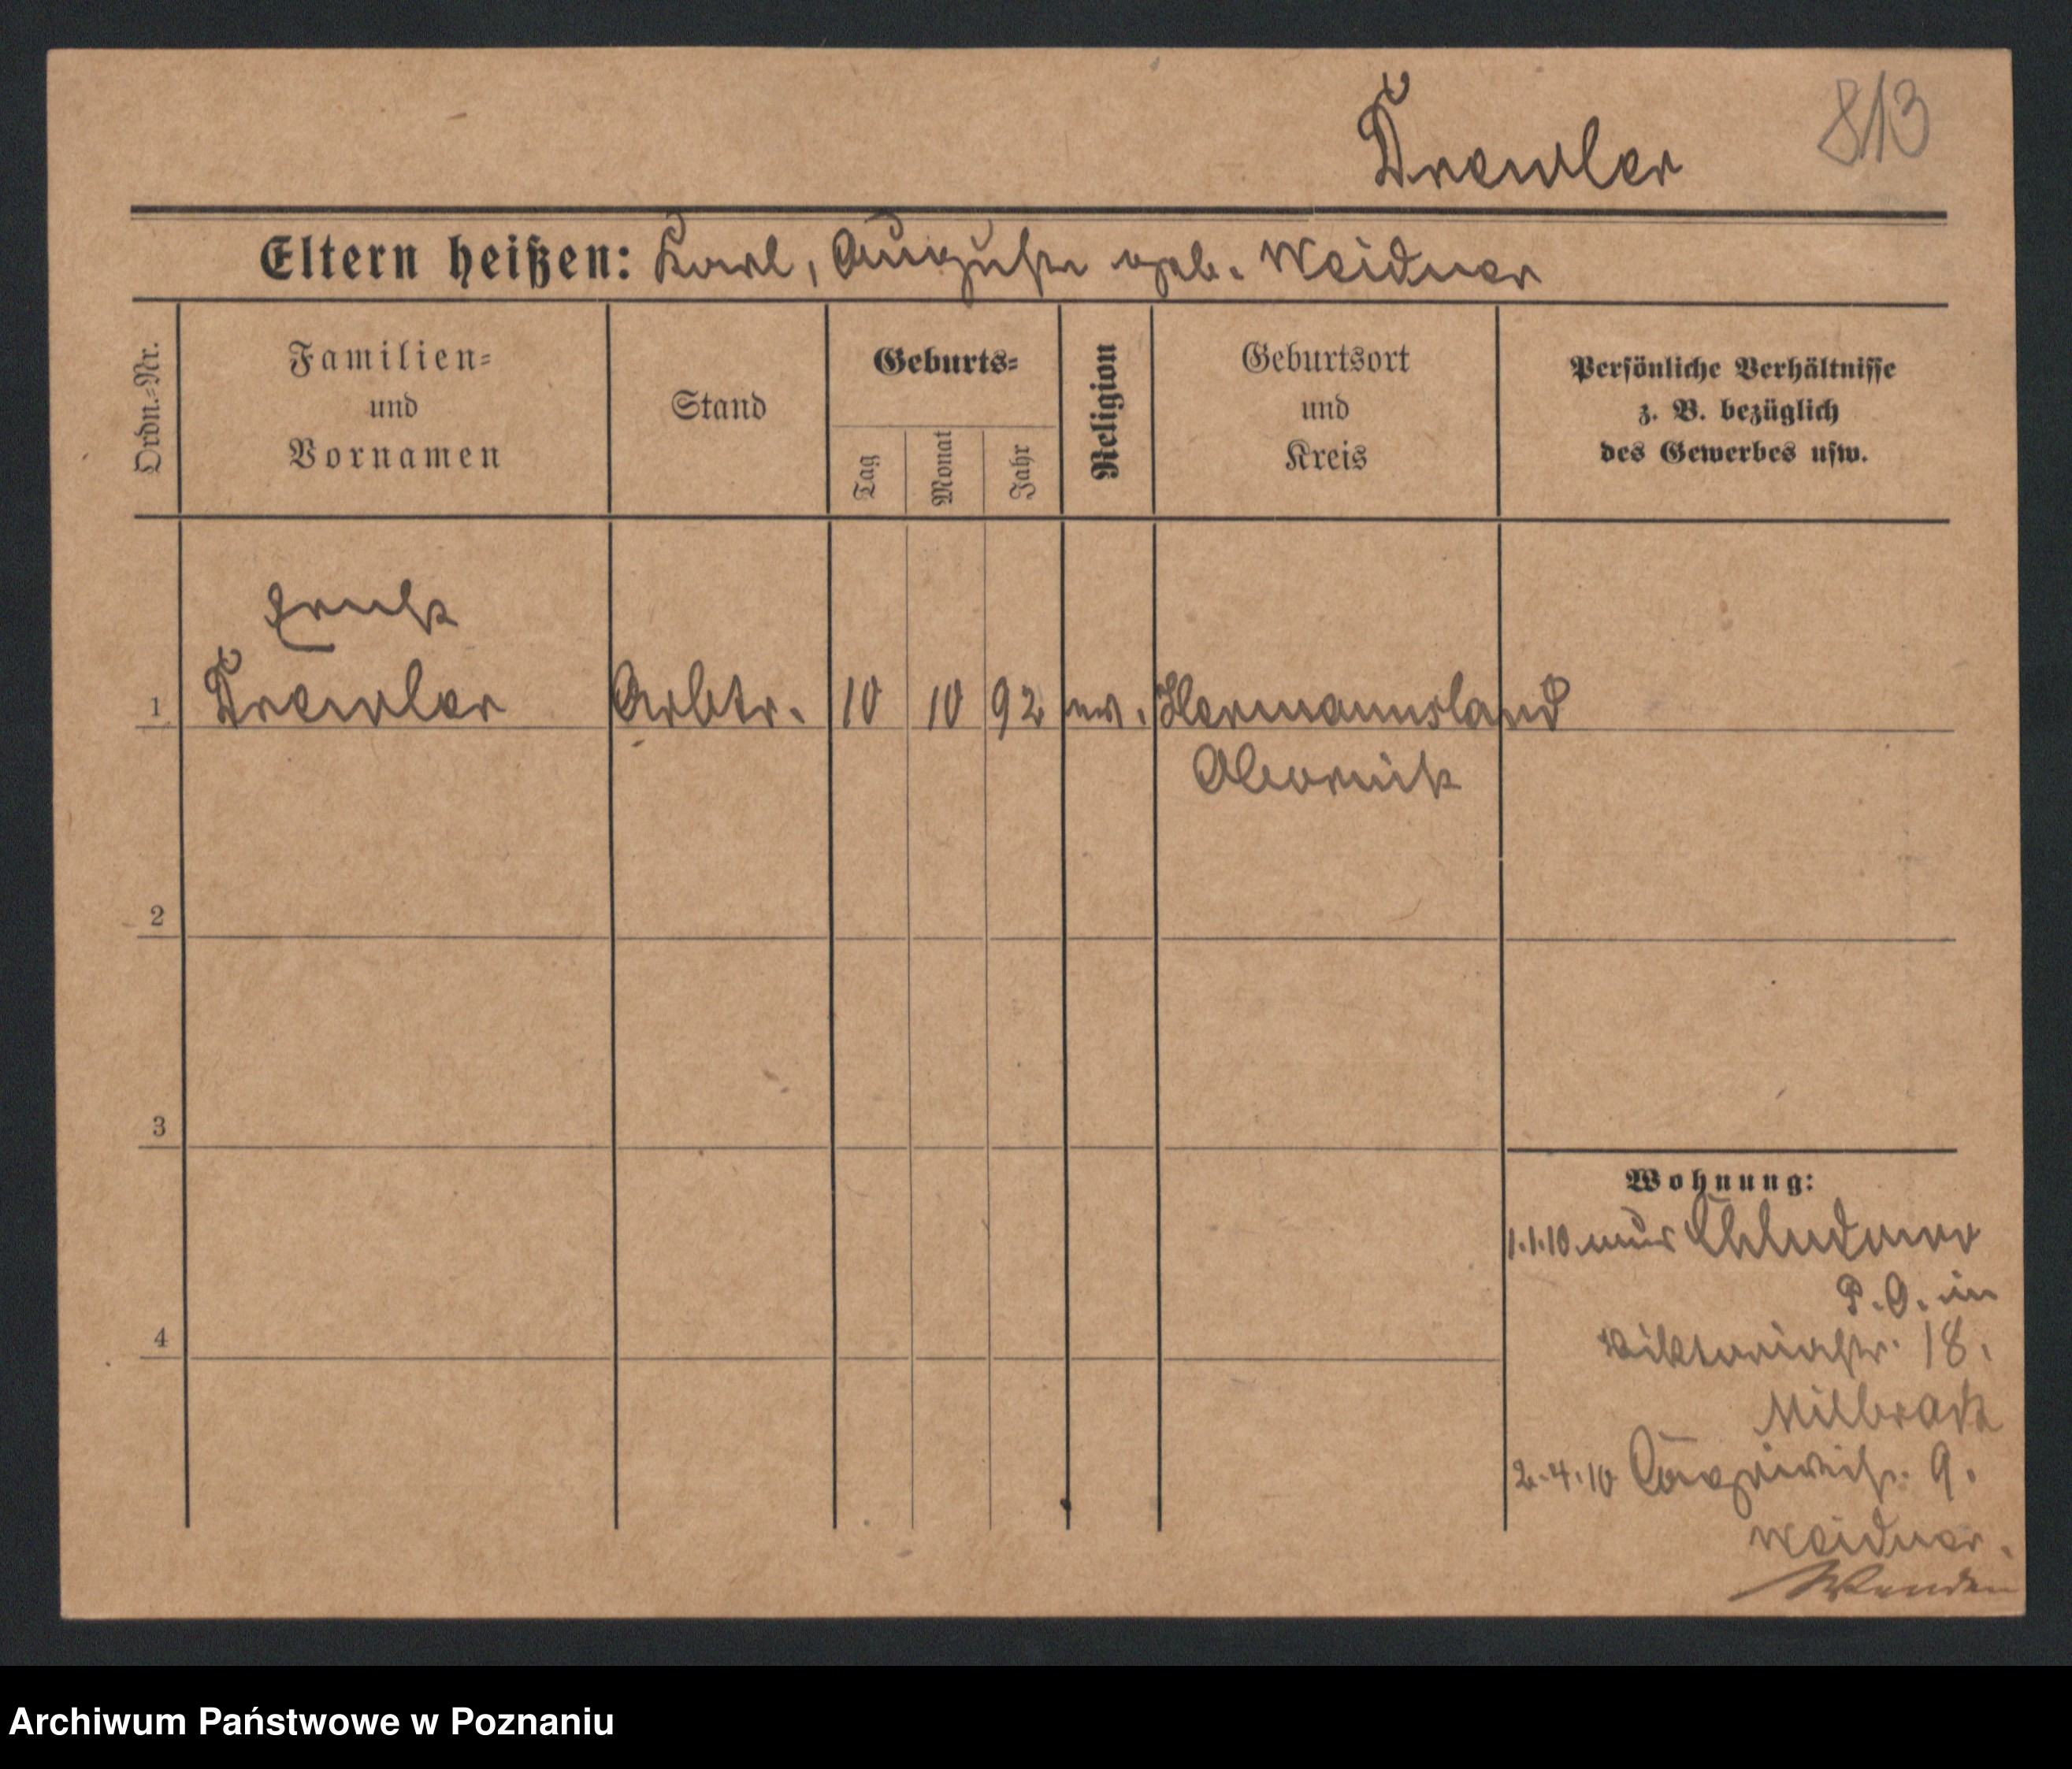 813
Drewler
Eltern heißen: Karl, Auguste geb. Weidner
Ordn.-Nr.
Familien- und Vornamen
Stand
Geburts-
Tag
Monat
Jahr
Religion
Geburtsort und Kreis
Persönliche Verhältnisse z. B. bezüglich des Gewerbes usw.
Ernst
1 Drewler Arbtr. 10 10 92 ev. Hermannsland
Obornik
2
3
4
Wohnung:
1.1.10 aus Chludowo
P. O. in
Viktoriastr. 18.
Milbrat
2.4.10 9.
Weidner.
Wenden
Archiwum Państwowe w Poznaniu